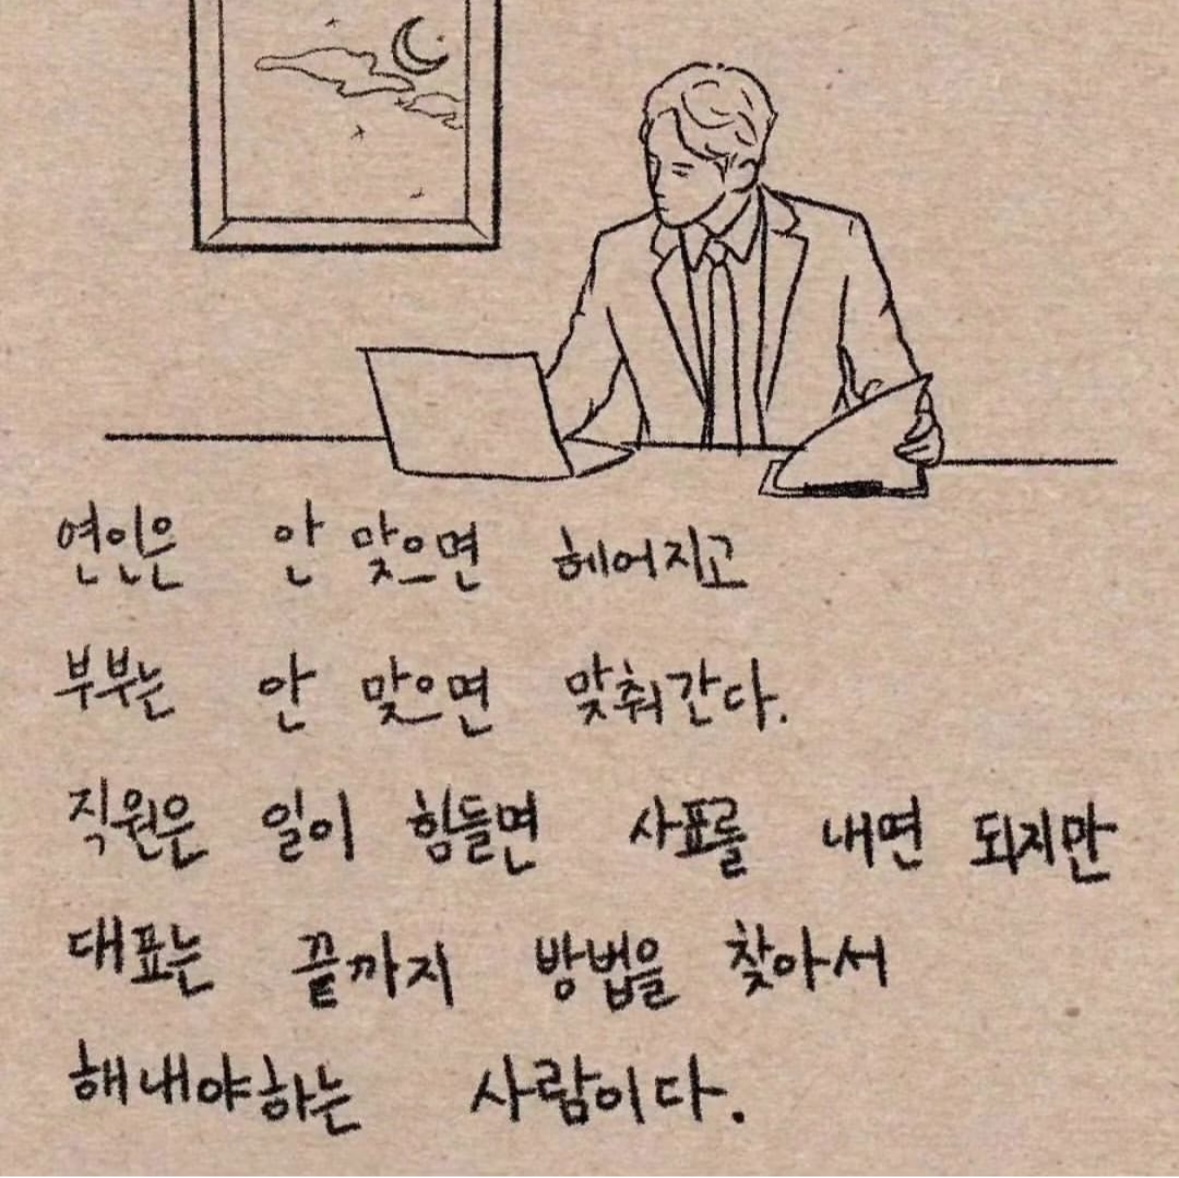 연인은 안 맞으면 헤어지고
부부는 안 맞으면 맞춰간다.
직원은 일이 힘들면 사표를 내면 되지만
대표는 끝까지 방법을 찾아서
해내야하는 사람이다.